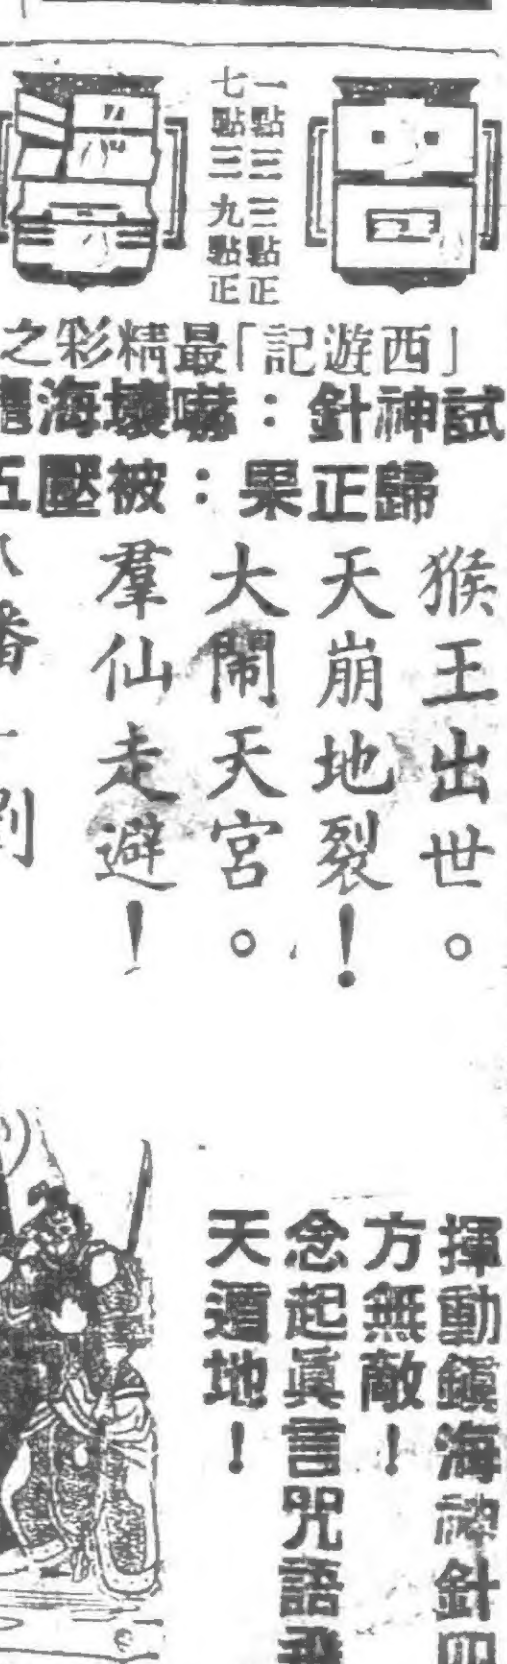 一點三 三點正
七點三 九點正
「西遊記」最精彩之
試神針：嚇壞海龍
歸正果：被壓五
猴王出世。
天崩地裂！
大鬧天宮。
羣仙走避！
揮動鎮海神針四
方無敵！
念起眞言咒語飛
天遁地！